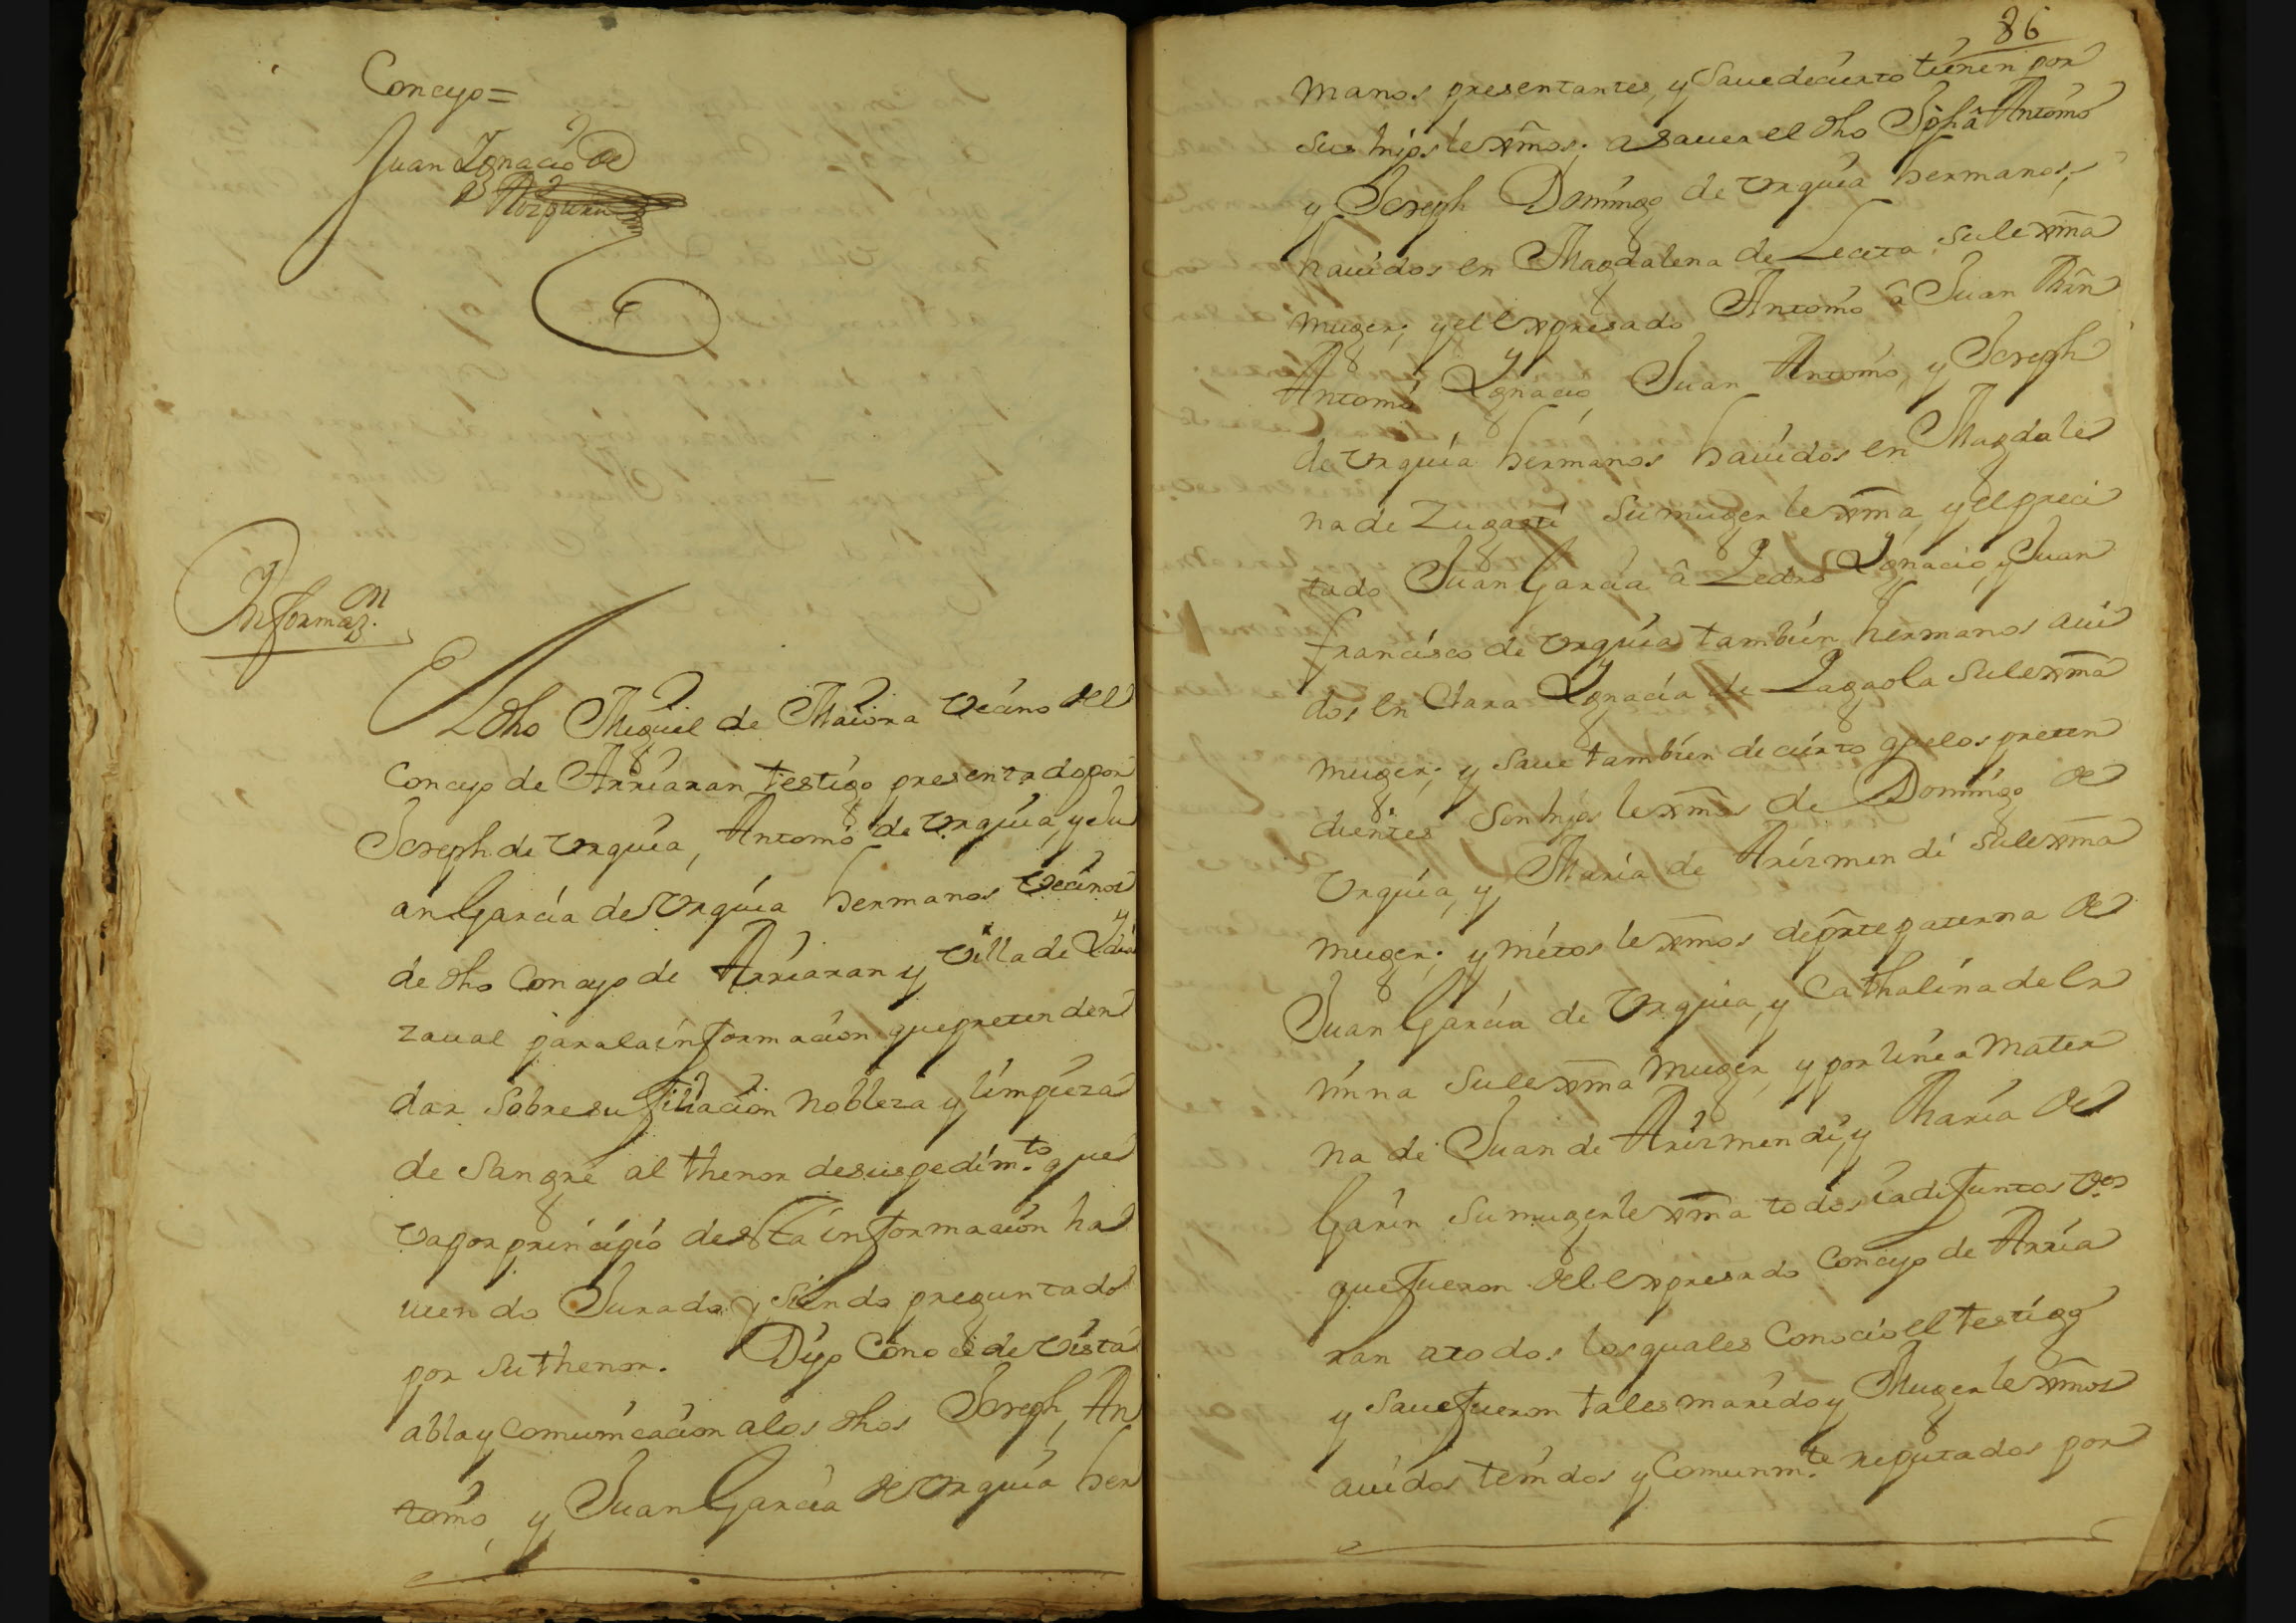 Concejo=
Juan Ignacio de
Informaz.on
El dho Miguel de Maiora vecino del
Concejo de Arriaran testigo presentado por
Joseph de Vrquia, Antonio de Vrquia, y Ju
an Garcia de Vrquia hermanos vecinos
de dho Concejo de Arriaran y villa de Ydia
zaual para la informacion que pretenden
dar sobre su filiacion nobleza y limpieza
de Sangre al thenor de sus pedim.to que
va por principio desta informacion ha
uiendo Jurado, y siendo preguntado
por su thenor. Dijo Conoce de vista
abla y comunicacion a los dhos Joseph, An
tonio, y Juan Garcia de Vrquia her
86
manos presentantes, y saue de cierto tienen por
sus hijos lexmos; a sauer el dho Jph a Antonio
y Joseph Domingo de Vrquia hermanos,
hauidos en Magdalena de Leceta su lexma
muger; y el expresado Antonio â Juan Bãn
Antonio Ygnacio, Juan Antonio, y Joseph
de Vrquia hermanos hauidos en Magdale
na de Zugasti su muger lexma, y el preci
tado Juan Garcia â Pedro Ygnacio, y Juan
francisco de Vrquia tambien hermanos aui
dos en Clara Ygnacia de Zagaola su lexma
muger; y saue tambien de cierto q̃ los preten
dientes son hijos lexmos de Domingo de
Vrquia, y Maria de Arizmendi su lexma
muger; y nietos lexmos de pte paterna de
Juan Garcia de Vrquia, y Cathalina de la
nina su lexma Muger, y por linea Mater
na de Juan de Arizmendi, y Maria de
Garin su muger lexma todos ia difuntos vos
que fueron del expresado Concejo de Arria
ran a todos los quales Conocio el testigo
y saue fueron tales marido y Muger lexmos
auidos tenidos y Comunm.te reputados por